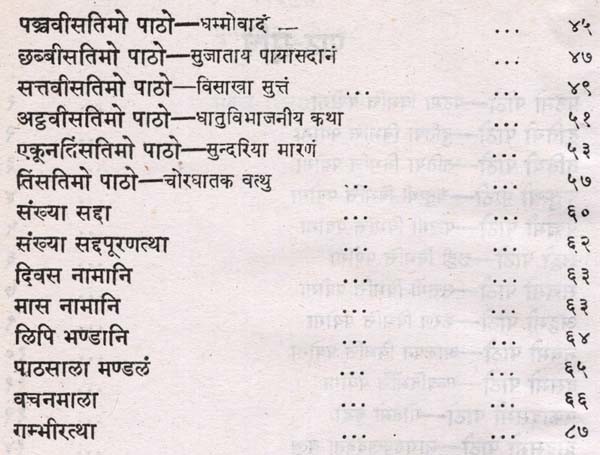 पञ्चवीसतिमो पाठो—धम्मोवादं ... ४५
छब्बीसतिमो पाठो—सुजाताय पायासदानं ... ४७
सत्तवीसतिमो पाठो—विसाखा सुत्तं ... ... ४९
अट्ठवीसतिमो पाठो—धातुविभाजनीय कथा ... ५१
एकूनतिंसतिमो पाठो—सुन्दरिया मारणं ... ५३
तिंसतिमो पाठो—चोरघातक वत्थु ... ... ५७
संख्या सद्दा ... ... ६०
संख्या सद्दपूरणत्था ... ... ६२
दिवस नामानि ... ... ६३
मास नामानि ... ... ६३
लिपि भण्डानि ... ... ६४
पाठसाला मण्डलं ... ... ६५
वचनमाला ... ... ६६
गम्भीरत्था ... ... ८७